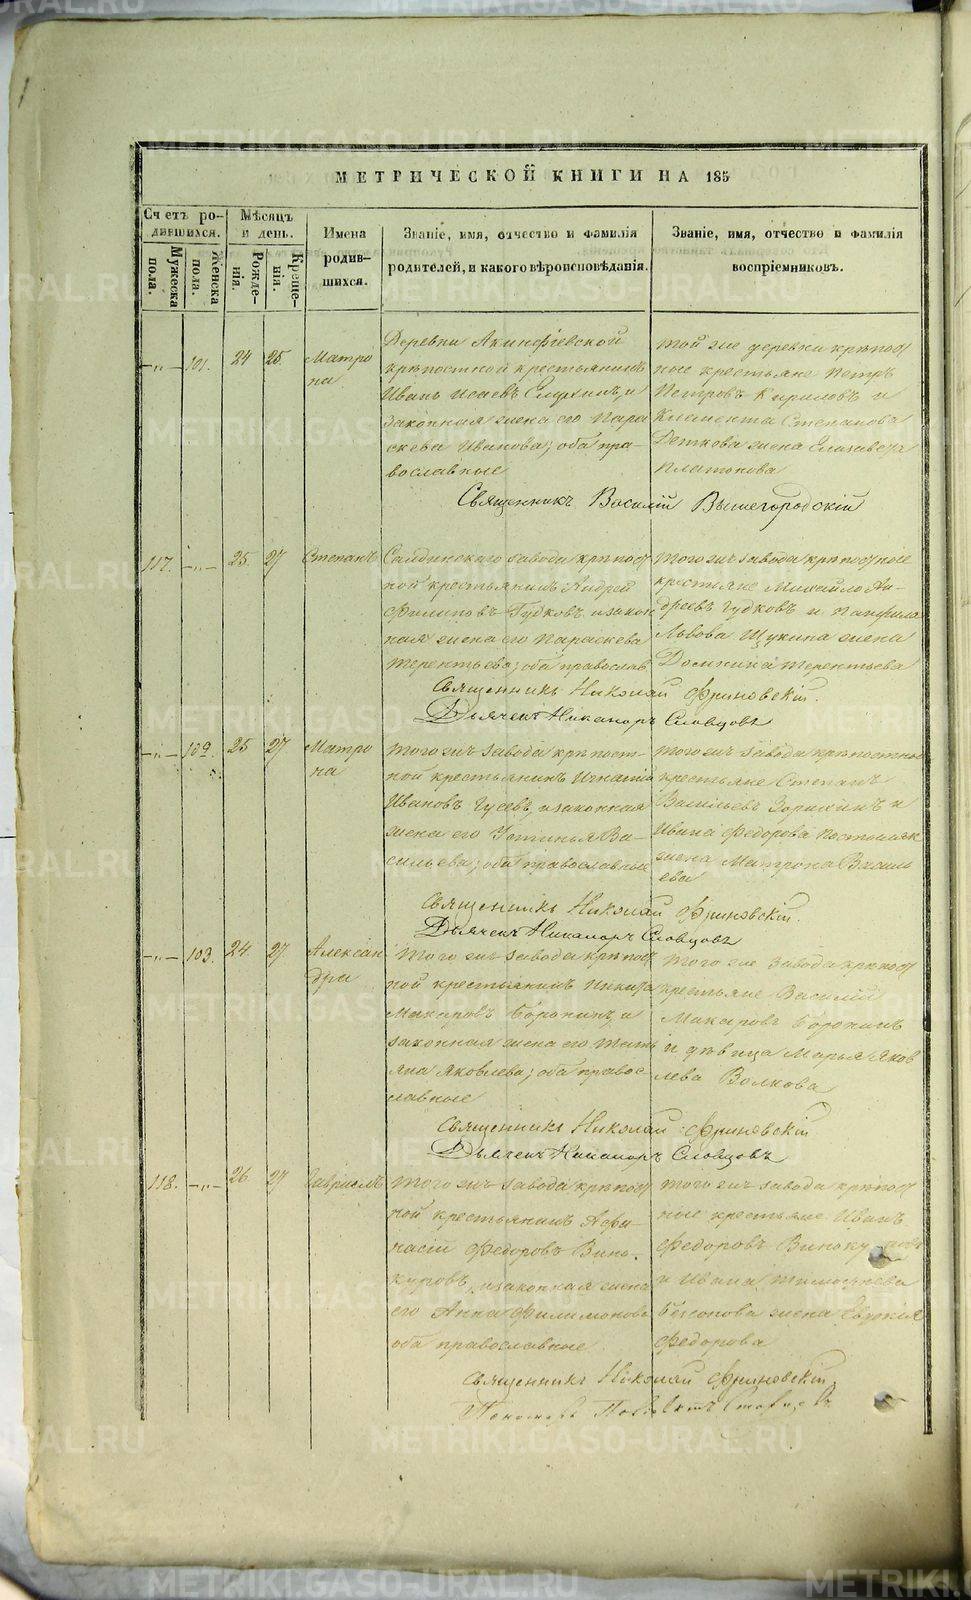 МЕТРИЧЕСКОЙ КНИГИ НА 185
Счетъ ро-
дившихся.
Мужеска
пола.
Женска
пола.
Мѣсяцъ
и день.
Рожде-
нія.
Креще-
нія.
Имена
родив-
шихся.
Званіе, имя, отчество и фамилія
родителей, и какого вѣроисповѣданія.
Званіе, имя, отчество и фамилія
воспріемниковъ.
101. 24 25. Матро
на
Деревни Акинфіевской
крѣпостной крестьянинъ
Иванъ Исаевъ и
законная жена его Пара
скева Иванова; оба пра-
вославные
Той же деревни крѣпост
ные крестьяне Петръ
Петровъ Кириловъ и
Климента Степанова
Деткова жена Елизавета
Платонова
Священникъ Василій Вышегородскій
117. 25. 27 Степанъ
Салдинскаго завода крѣпост
ной крестьянинъ Андрей
Филиповъ Гудковъ и закон
ная жена его Параскева
Терентьева; оба православ
Тогожъ завода крѣпостные
крестьяне Михайло Ан-
дреевъ Гудковъ и Панфила
Львова Щукина жена
Домнина Терентьева
Священникъ Николай Фриновскій.
Дьячекъ Никаноръ Словцовъ
102. 25 27 Матро
на
Тогожъ завода крѣпост-
ной крестьянинъ Игнатій
Ивановъ Гусевъ, и законная
жена его Устинья Ва-
сильева; оба православные
Тогожъ завода крѣпостные
крестьяне Степанъ
Васильевъ Зорихинъ и
Ивана Федорова
жена Матрона Василь
ева
Священникъ Николай Фриновскій.
Дьячекъ Никаноръ Словцовъ
103. 24. 27 Алексан
дра
Тогожъ завода крѣпост
ной крестьянинъ Никита
Макаровъ Боронинъ, и
законная жена его Тать
яна Яковлева; оба правос-
лавные
Того же завода крѣпост
крестьяне Василій
Макаровъ Боронинъ
и дѣвица Марья Яков
лева Волкова
Священникъ Николай Фриновскій
Дьячекъ Никаноръ Словцовъ
118. 26. 27 Гавріилъ
Тогожъ завода крѣпост
ной крестьянинъ Афа-
насій Федоровъ Вино-
куровъ, и законная жена
его Анна Филимонова
оба православные
Тогожъ завода крѣпост
ные крестьяне Иванъ
Федоровъ Винокуровъ
и Ивана Тимофеева
жена Евдокія
Федорова
Священникъ Николай Фриновскій.
Пономарь
METRIKI.GASO-URAL.RU